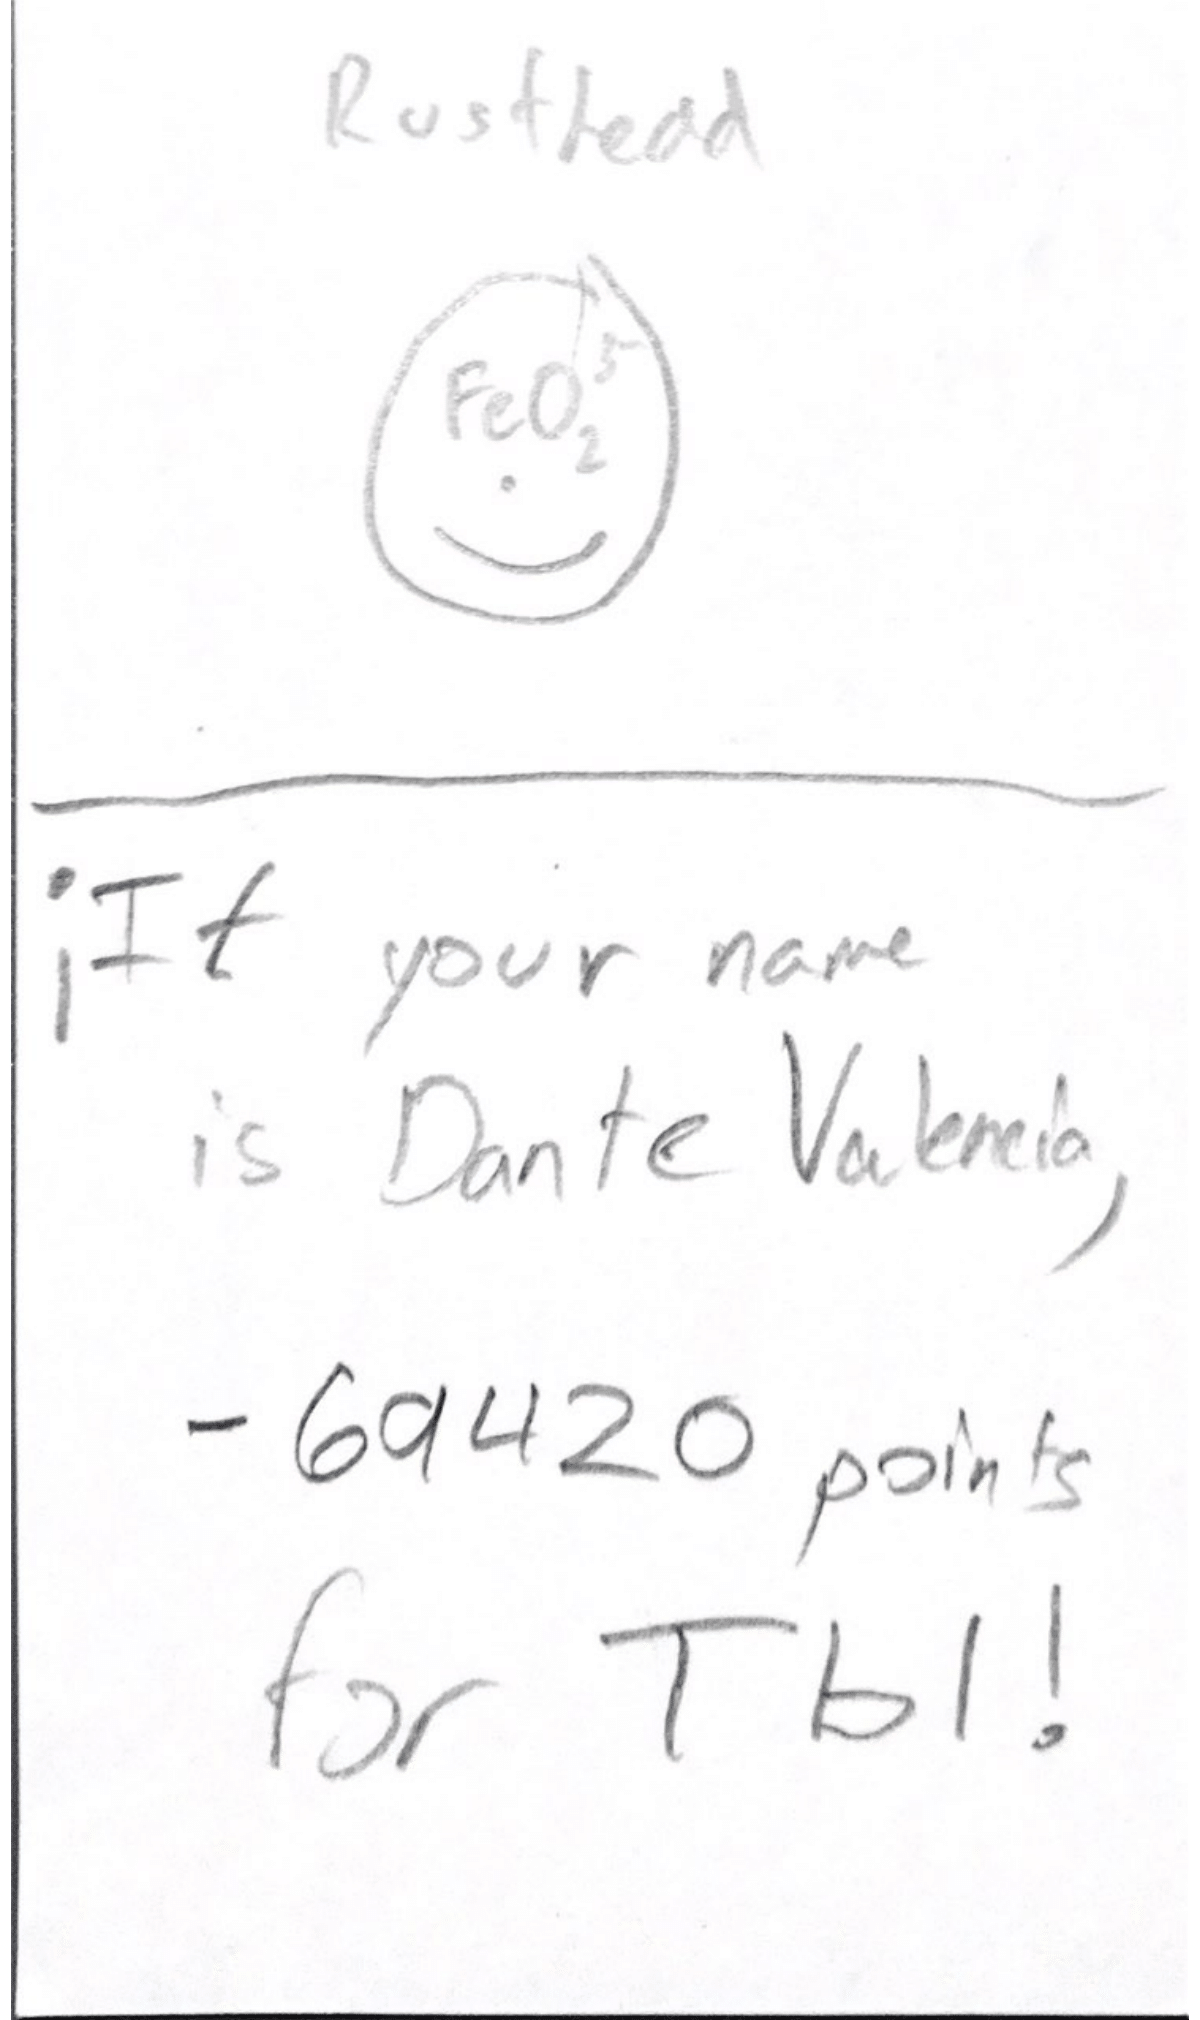 Rusthead
FeO₂⁵⁻
¡If your name
is Dante Valencia,
- 69420 points
for Tbl!